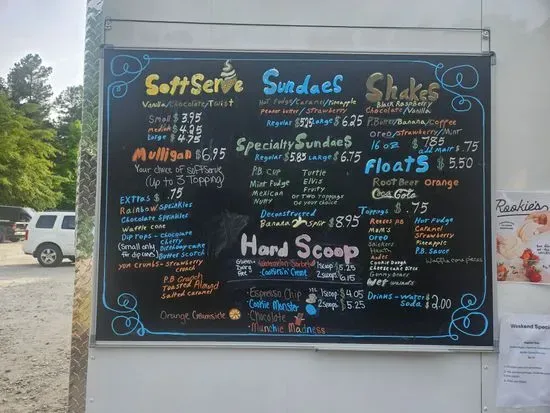 Soft Serve
Vanilla/Chocolate/Twist
Small $3.95
Medium $4.25
Large $4.75
Mulligan $6.95
Your choice of softserve
(Up to 3 Topping)
Extras $.75
Rainbow Sprinkles
Chocolate Sprinkles
Waffle cone
Dip Tops - chocolate
Cherry
(Small only for dip cones)
Birthday cake
Butter Scotch
Yum Crumbs - Strawberry
crunch
P.B Crunch
Toasted Almond
Salted caramel
Orange Creamsicle
Sundaes
Hot Fudge/Caramel/Pineapple
Peanut butter/Strawberry
Regular $5.25 Large $6.25
Specialty Sundaes
Regular $5.85 Large $6.75
P.B Cup
Mint Fudge
Mexican
Nutty
Turtle
Elvis
Fruity
or Two Toppings
of your choice
Deconstructed
Banana Split $8.95
Hard Scoop
Watermelon Sherbet
Cookies'n'Creme
1scoop $5.25
2scoop $6.15
Espresso Chip
Cookie Monster
Chocolate
Munchie Madness
1scoop $4.05
2scoop $5.25
Shakes
Black Raspberry
Chocolate/Vanilla
P.Butter/Banana/Coffee
Oreo/Strawberry/Mint
16 oz $7.85
add Malt $.75
Floats $5.50
Root Beer Orange
Coca Cola
Toppings $.75
Reeses PB
M&M's
Oreo
Snickers
Heath
Andes
Cookie Dough
Cheesecake Bites
Gummy Bears
Wet walnuts
Hot Fudge
Caramel
Strawberry
Pineapple
P.B. Sauce
Waffle cone pieces
Drinks - Water
Soda $2.00
Rookie's
Weekend Special